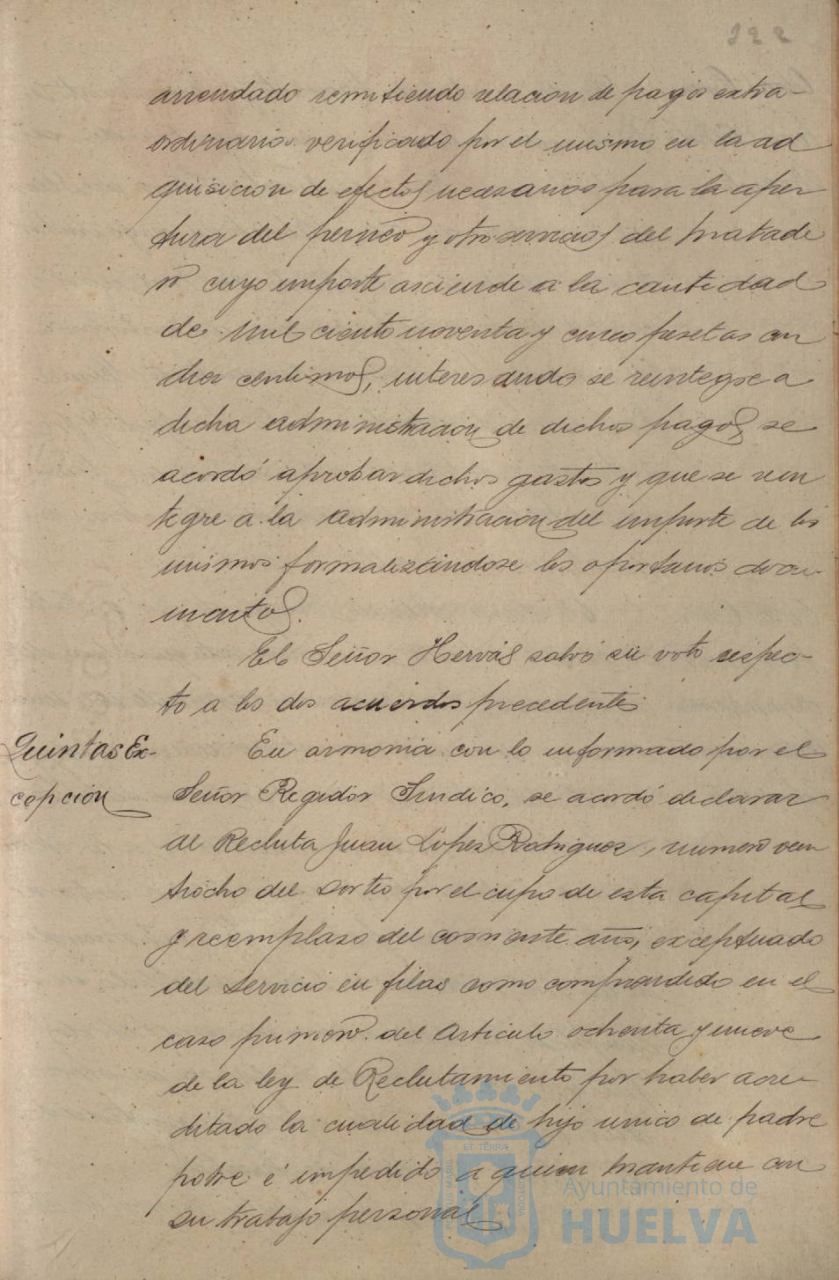 222
arrendado remitiendo relacion de pagos extra-
ordinarios verificado por el mismo en la ad
quisicion de efectos necesarios para la aper
tura del perneo y otros servicios del matade
ro cuyo importe asciende a la cantidad
de mil ciento noventa y cinco pesetas con
diez centimos, interesando se reintegre a
dicha administracion de dichos pagos, se
acordó aprobar dichos gastos y que se rein
tegre a la administracion del importe de los
mismos formalizandose los oportunos docu-
mentos.
El Señor Hervás salvó su voto respec-
to a los dos acuerdos precedentes
Quintas Ex-
cepcion
En armonia con lo informado por el
Señor Regidor Sindico, se acordó declarar
al Recluta Juan López Rodriguez, numero vein
tiocho del sorteo por el cupo de esta capital
y reemplazo del corriente año, exceptuado
del servicio en filas como comprendido en el
caso primero del articulo ochenta y nueve
de la ley de Reclutamiento por haber acre-
ditado la cualidad de hijo unico de padre
pobre é impedido a quien mantiene con
su trabajo personal
Ayuntamiento de
HUELVA